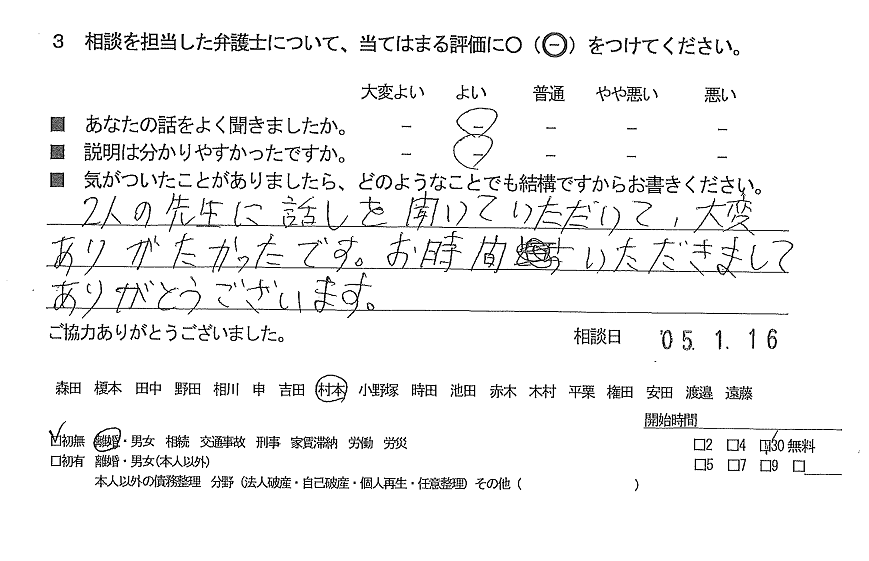 3 相談を担当した弁護士について、当てはまる評価に○（㊀）をつけてください。
大変よい よい 普通 やや悪い 悪い
■ あなたの話をよく聞きましたか。 － － － － －
■ 説明は分かりやすかったですか。 － － － － －
■ 気がついたことがありましたら、どのようなことでも結構ですからお書きください。
2人の先生に話しを聞いていただいて、大変
ありがたかったです。お時間 いただきまして
ありがとうございます。
ご協力ありがとうございました。 相談日 '05. 1. 16
森田 榎本 田中 野田 相川 申 吉田 村本 小野塚 時田 池田 赤木 木村 平栗 権田 安田 渡邉 遠藤
開始時間
□初無 離婚・男女 相続 交通事故 刑事 家賃滞納 労働 労災 □2 □4 □30 無料
□初有 離婚・男女(本人以外) □5 □7 □9 □
本人以外の債務整理 分野（法人破産・自己破産・個人再生・任意整理）その他（ ）